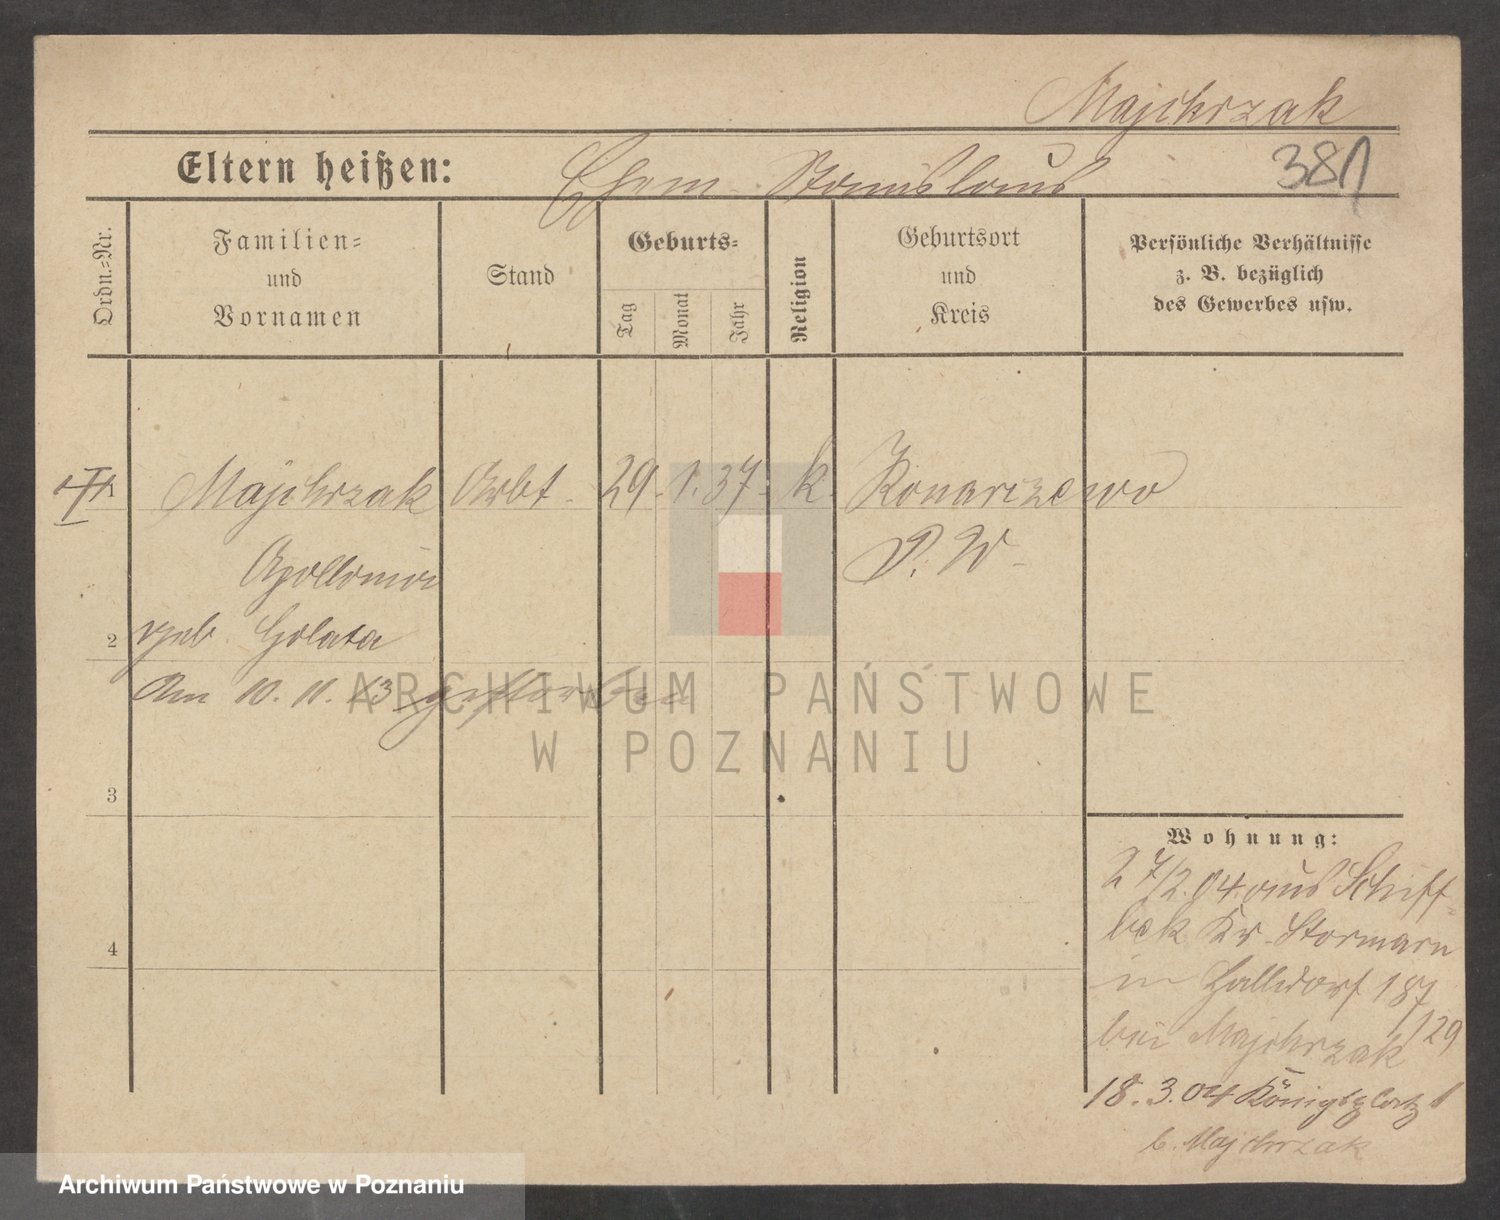 Majchrzak
Eltern heißen: Ehem. Stanislaus 381
Ordn.-Nr.
Familien-
und
Vornamen
Stand
Geburts-
Tag
Monat
Jahr
Religion
Geburtsort
und
Kreis
Persönliche Verhältnisse
z. B. bezüglich
des Gewerbes usw.
1 Majchrzak Arbt. 29. 1. 37. k. Konarzewo
Apollonia P. W.
2 geb. Golata
Am 10. 11. 13 gestorben
3
4
Wohnung:
27/2. 04. aus Schiff-
bek Kr. Stormarn
in Halldorf 187
bei Majchrzak /129
18. 3. 04 Königsplatz 1
b. Majchrzak
ARCHIWUM PAŃSTWOWE
W POZNANIU
Archiwum Państwowe w Poznaniu